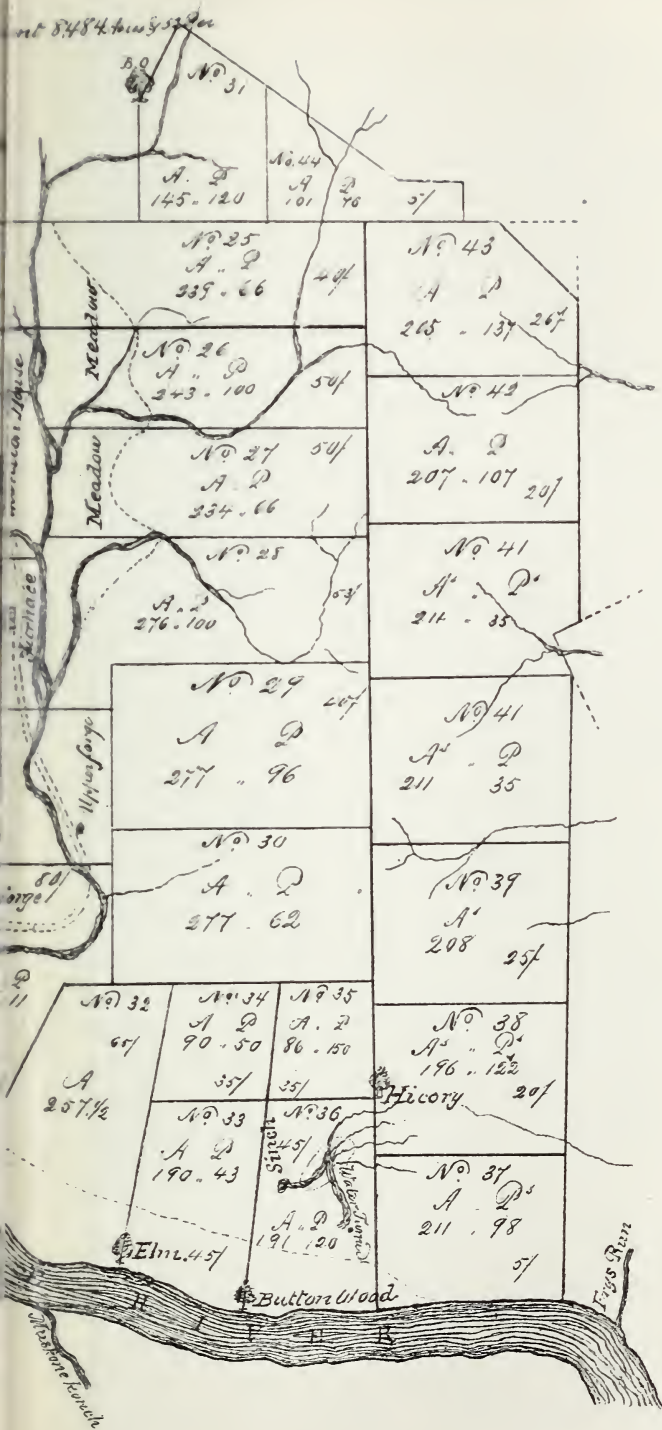 8484
B.O
No 31
A. P
145.. 120
No. 44
A P
101 76
5/
No 25
A .. P
339 .. 66
40/
No 43
A P
265 .. 137
267
Meadow
No 26
A .. P
243 .. 100
50/
No 42
A. P
207 .. 107
20/
Mansion House
Meadow
No 27
50/
A P
234 .. 66
No 28
A .. P
276 .. 100
No 41
As .. Ps
211 .. 35
Furnace
No 29
A P
277 .. 96
No 41
As .. P
211 35
Upper forge
No 30
A .. P
277 .. 62
80/
forge
No 39
As
208
25/
P
11
No 32
A
257 1/2
No 34
A P
90 .. 50
35/
No 35
A .. P
86 .. 150
35/
No 38
As .. Ps
196 .. 122
20/
Hicory
No 33
A P
190 .. 43
No 36
45/
Sinck
A .. P
191 120
No 37
A Ps
211 .. 98
5/
Elm. 45/
Button Wood
Frys Run
R I F E R